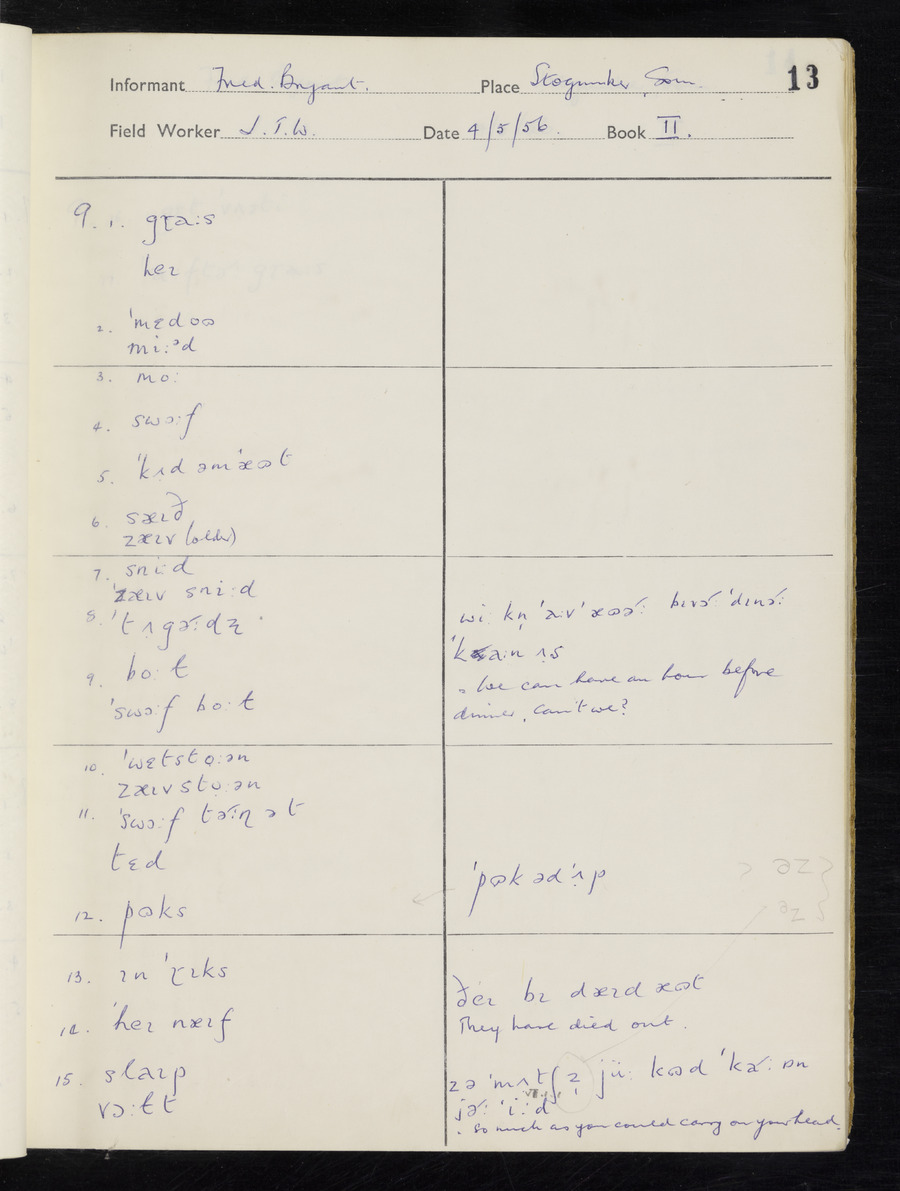 13
Informant Fred. Bryant. Place Stogumber, Som.
Field Worker J.T.W. Date 4/5/56. Book II.
9. 1. gɽaːs
her
2. ˈmɛdoɷ
miːᵊd
3. moː
4. swɔːf
5. ˈkʌd əmˈæɷt
6. sæɪð
zæɪv (older)
7. sniːd
ˈzæɪv sniːd
8. ˈtʌgəːdz
9. boːt
ˈswɔːf boːt
10. ˈwɛtstoːən
zæɪvstoːən
11. ˈswɔːf təːnət
tɛd
12. pɷks
13. ɪn ˈɽɪks
14. ˈheɪ næɪf
15. slaɪp
vɔːɫt
wiː kn̩ ˈaːvˈ æɷəː bɪvəː ˈdɪnəː
ˈkaːn ʌs
= We can have an hour before
dinner, can't we?
ˈpɷk ədˈʌp
əz
zə
ðeɪ bɪ dæɪd æɷt
They have died out.
zə ˈmʌtʃ z̩ jüː kɷd ˈkaː ɒn
jəː ˈiːd
= so much as you could carry on your head.